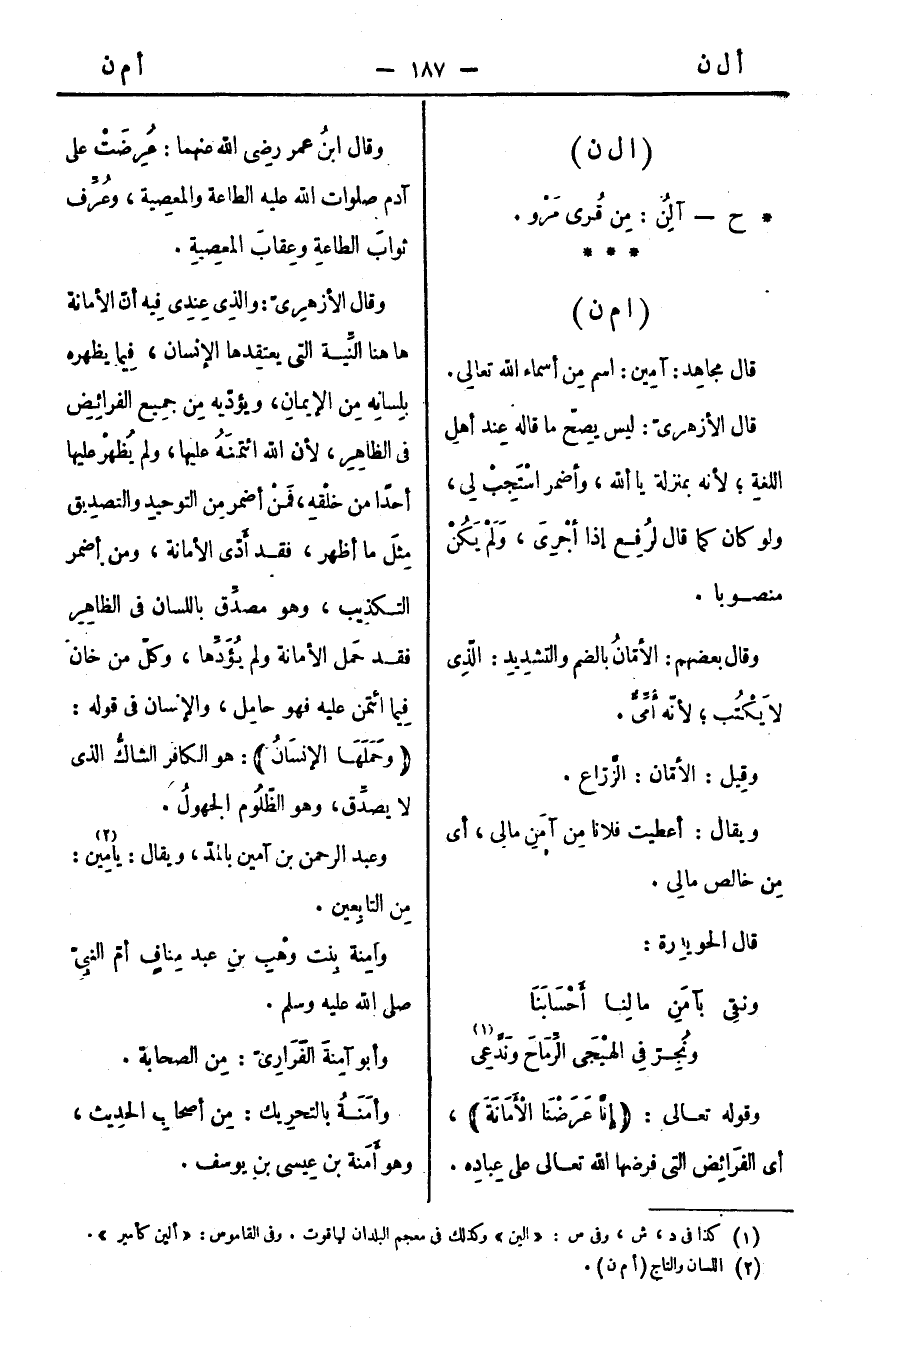 أ ل ن — ١٨٧ — أ م ن
( ا ل ن )
* ح — آلِنُ : مِن قُرى مَرْو .
* * *
( ا م ن )
قال مجاهِد : آمِين : اسم مِن أسماء الله تعالى .
قال الأزهرىّ : ليس يصِحّ ما قاله عِند أهلِ
اللغةِ ؛ لأنه بمنزلة يا ألله ، وأضمر اسْتَجِبْ لِى ،
ولو كان كما قال لرُفِع إذا أُجْرِىَ ، وَلَمْ يَكُنْ
منصـوبا .
وقال بعضهم : الأُمَّانُ بالضم والتشديد : الّذِى
لا يَكْتُب ؛ لأنّه أُمِّىٌّ .
وقِيل : الأُمّان : الزَّرّاع .
ويقال : أعطيت فلانا مِن آمَنِ مالِى ، أى
مِن خالص مالِى .
قال الحويدِرة :
ونقِى بآمَنِ مالِنـا أَحْسَابَنَا
ونُجِـرّ فِى الهَيْجَى الرِّمَاحَ ونَدَّعِى (١)
وقوله تعـالى : ﴿ إِنَّا عَرَضْنَا الْأَمَانَةَ ﴾ ،
أى الفَرَائِض التى فرضها الله تعـالى على عِبادِه .
وقال ابنُ عمر رضِى الله عنهما : عُرِضَتْ على
آدم صلوات الله عليه الطاعة والمعصِية ، وعُرِّف
ثوابَ الطاعةِ وعِقابَ المعصِيةِ .
وقال الأزهرِىّ : والذِى عِندِى فِيه أنّ الأمانة
ها هنا النِّيـة التى يعتقِدها الإنسان ، فِيما يظهِره
بلِسانِه مِن الإيمانِ ، ويؤدّيه مِن جمِيع الفرائِض
فى الظاهِرِ ، لأن الله ائتمنَهُ عليها ، ولم يُظْهِرْ عليها
أحدًا من خلْقِه ، فمَنْ أضمر مِن التوحيد والتصدِيق
مِثلَ ما أظهر ، فقـد أَدَّى الأمانة ، ومن أضمر
التـكذِيب ، وهو مصدِّق باللسان فى الظاهِرِ
فقـد حمَل الأمانة ولم يُؤَدِّها ، وكلّ من خانَ
فِيما ائتُمن عليه فهو حامِل ، والإنسان فى قوله :
﴿ وَحَمَلَهَـا الإِنسَانُ ﴾ : هو الكافر الشاكُّ الذى
لا يصدِّق ، وهو الظَّلُوم الجهولُ .
وعبد الرحمن بن آمين بالمدّ ، ويقال : يامِين (٢) :
مِن التابِعين .
وآمِنة بِنت وهْبِ بنِ عبد مِنافٍ أمّ النبِىّ
صلى الله عليه وسلم .
وأبو آمِنةَ الفَزَارِىّ : مِن الصحابة .
وأَمَنَـةُ بالتحرِيك : مِن أصحابِ الحدِيث ،
وهو أَمَنة بن عِيسى بنِ يوسف .
(١) كذا فى د ، ش ، وفى س : « الين » وكذلك فى معجم البلدان لياقوت . وفى القاموس : « ألين كأمير » .
(٢) اللسان والتاج ( أ م ن ) .